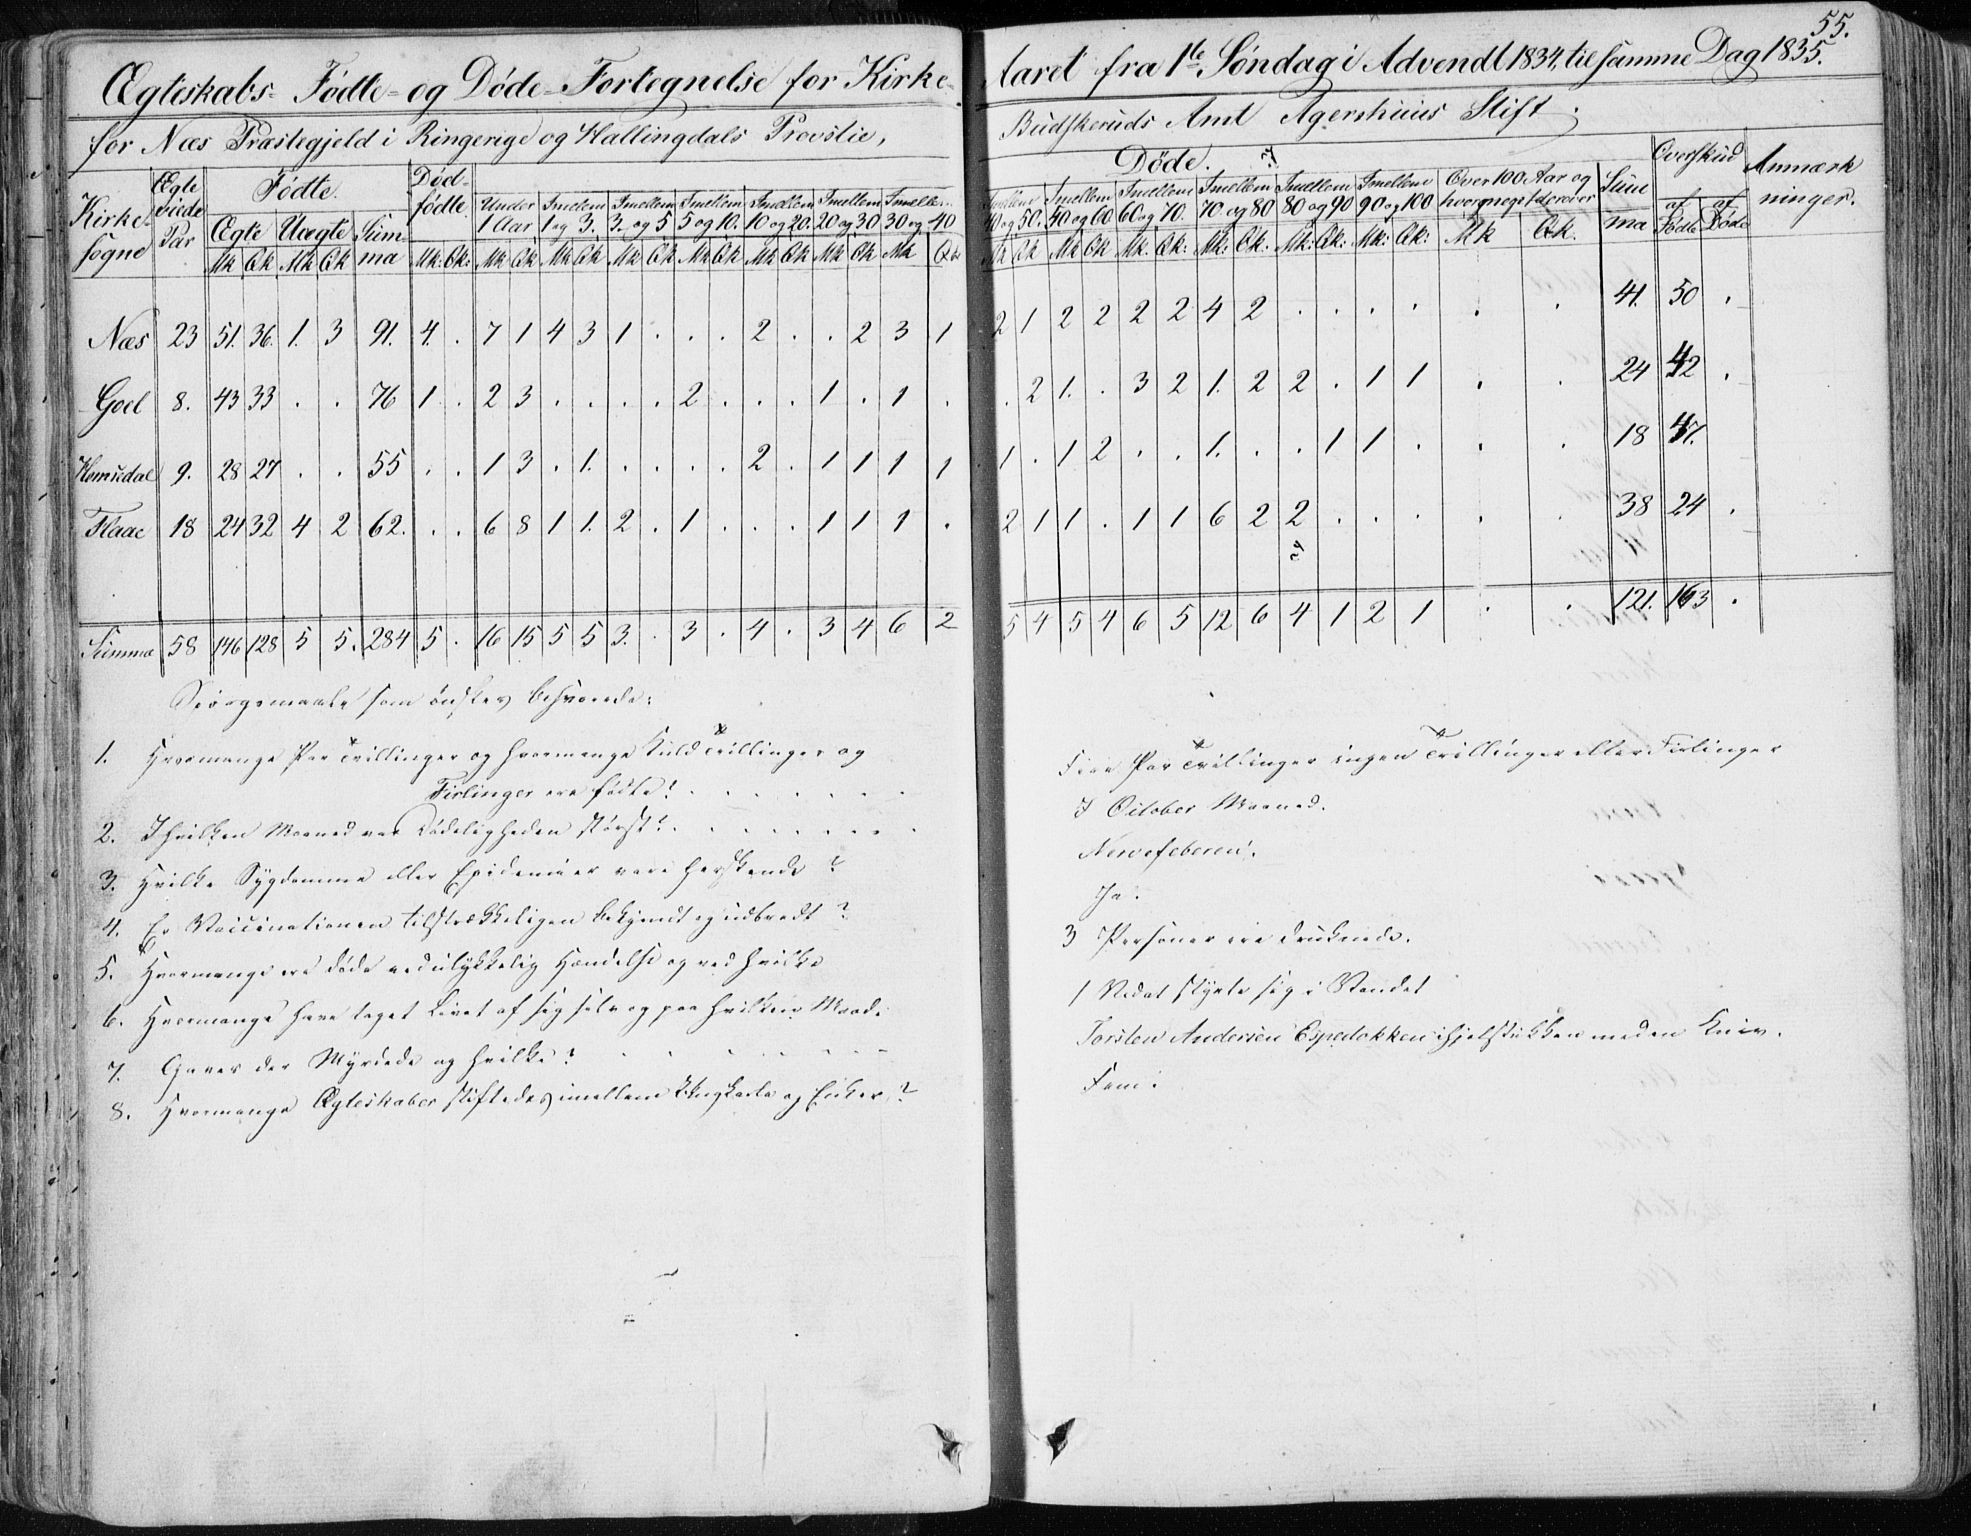 55.
Ægteskabs- Fødte- og Døde-Fortegnelse for Kirke- Aaret fra 1te Søndag i Advendt 1834, til samme Dag 1835.
for Næs Præstegjeld i Ringerige og Hallingdals Provstie, Budskeruds Amt Agershuus Stift.
Kirke- sogne | Ægte Viede Par | Fødte. | Død- fødte. | Døde. | Overskud | Anmærk ninger.
Ægte | Uægte | Sum- ma | Under 1 Aar | Imelem 1 og 3. | Imellem 3. og 5 | Imellem 5 og 10. | Imellem 10 og 20. | Imellem 20 og 30 | Imellem 30 og 40 | Imellem 40 og 50. | Imellem 50 og 60 | Imellem 60 og 70. | Imellem 70 og 80 | Imellem 80 og 90 | Imellem 90 og 100 | Over 100 Aar og hvor meget derover | Sum ma | af Fødte | af Døde
Mk Qk Mk Qk Mk: Qk: Mk Qk Mk Qk Mk Qk Mk Qk Mk Qk Mk Qk Mk Qk Mk Qk Mk Qk Mk: Qk: Mk: Qk: Mk: Qk: Mk: Qk: Mk Qk.
Næs 23 51. 36. 1. 3 91. 4. . 7 1 4 3 1 . . . 2 . . 2 3 1 2 1 2 2 2 2 4 2 . . . . . . 41. 50 .
Goel 8. 43 33 . . 76 1 . 2 3 . . . . 2 . . . 1 . 1 . . 2 1. . 3 2 1. 2 2 . 1 1 . . 24 42 .
Hemsedal 9. 28 27 . . 55 . . 1 3 . 1. . . . . 2 . 1 1 1 1 1 . 1 2 . . 1. . . 1 1 . . . 18 47.
Flaae 18 24 32 4 2 62. . . 6 8 1 1. 2 . 1 . . . 1 1 1 . 2 1 1 . 1 1 6 2 2 . . . . . 38 24 .
Summa 58 146 128 5 5. 284 5 . 16 15 5 5 3. . 3 . 4 . 3 4 6 2 5 4 5 4 6 5 12 6 4 1 2 1 . . 121. 163 .
Spørgsmaale som ønskes besvarede:
1. Hvormange Par Tvillinger og hvormange Kuld Trillinger og
Firlinger ere fødte? Fire Par Tvillinger ingen Trillinger eller Firlinger
2. I hvilken Maaned var Dødeligheden størst? I October Maaned.
3. Hvilke Sygdomme eller Epidemier vare herskende? Nervefeberen.
4. Er Vaccinationen tilstrækkeligen bekjendt og udbredt? Ja.
5. Hvormange ere døde ved ulykkelig Hændelse og ved hvilke 3 Personer ere druknede.
6. Hvormange have taget Livet af sig selv og paa hvilken Maade 1 Vedat styrte sig i Vandet
7. Gaves der Myrdede og hvilke? Torsten Andersen Espedokken ihjelstukken med en Kniv.
8. Hvormange Ægteskaber stiftedes imellem Ungkarle og Enker? Fem.